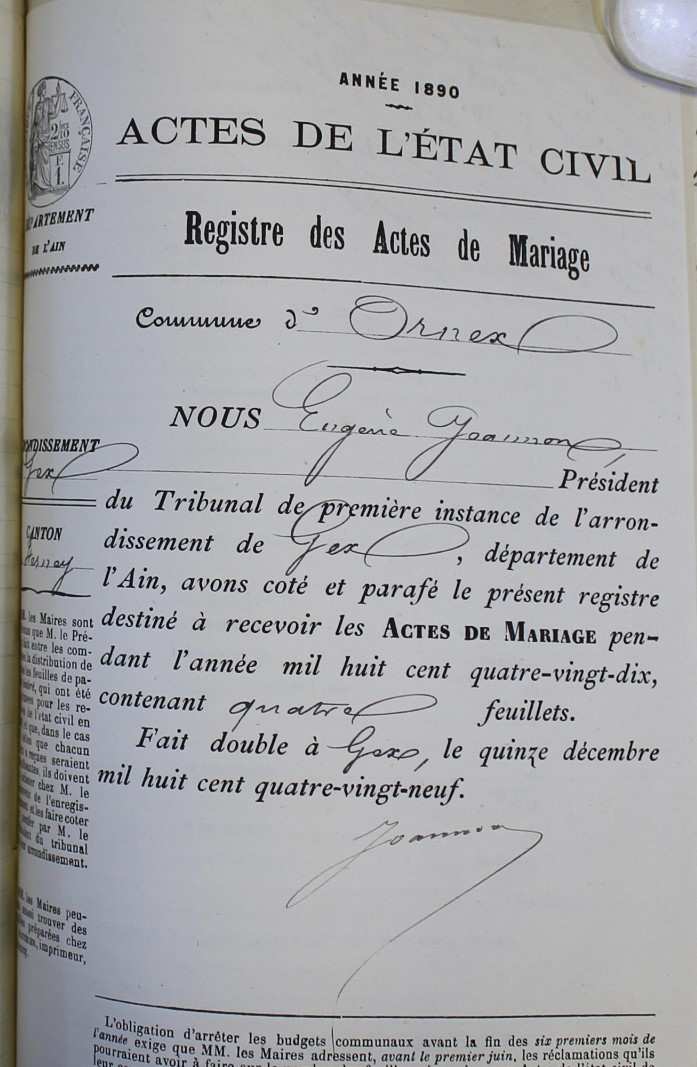 ANNÉE 1890
ACTES DE L'ÉTAT CIVIL
Registre des Actes de Mariage
Commune d' Ornex
NOUS Eugène
Président
du Tribunal de première instance de l'arron-
dissement de Gex, département de
l'Ain, avons coté et parafé le présent registre
destiné à recevoir les ACTES DE MARIAGE pen-
dant l'année mil huit cent quatre-vingt-dix,
contenant quatre feuillets.
Fait double à Gex, le quinze décembre
mil huit cent quatre-vingt-neuf.
FRANÇAISE
2 10
EN SUS
DE L'AIN
Gex
CANTON
les Maires sont
que M. le Pré-
les com-
distribution de
feuilles de pa-
qui ont été
pour les re-
de l'état civil en
que, dans le cas
que chacun
reçues seraient
ils doivent
chez M. le
de l'enregis-
et les faire coter
par M. le
du tribunal
arrondissement.
les Maires peu-
trouver des
préparées chez
imprimeur,
L'obligation d'arrêter les budgets communaux avant la fin des six premiers mois de
l'année exige que MM. les Maires adressent, avant le premier juin, les réclamations qu'ils
pourraient avoir à faire